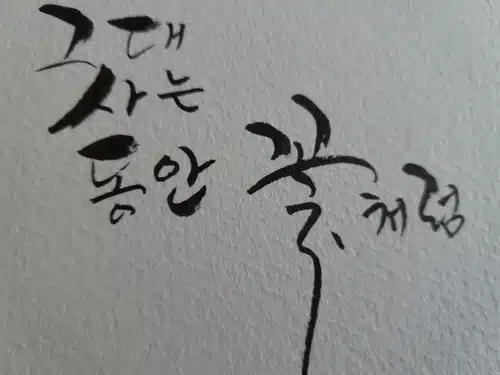 그대
사는
동안 꽃처럼